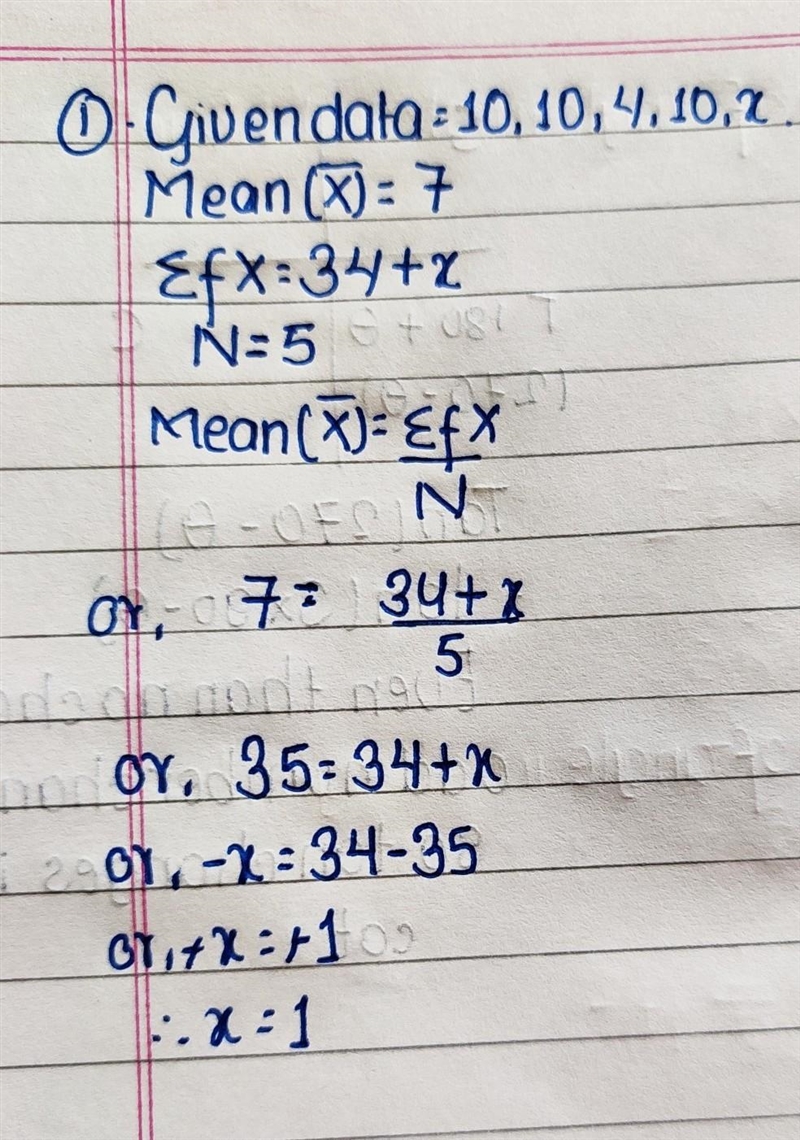 ① Given data = 10, 10, 4, 10, x.
Mean (x̅) = 7
Σfx = 34 + x
N = 5
Mean (x̅) = Σfx
N
or, 7 = 34 + x
5
or, 35 = 34 + x
or, -x = 34 - 35
or, +x = +1
∴ x = 1